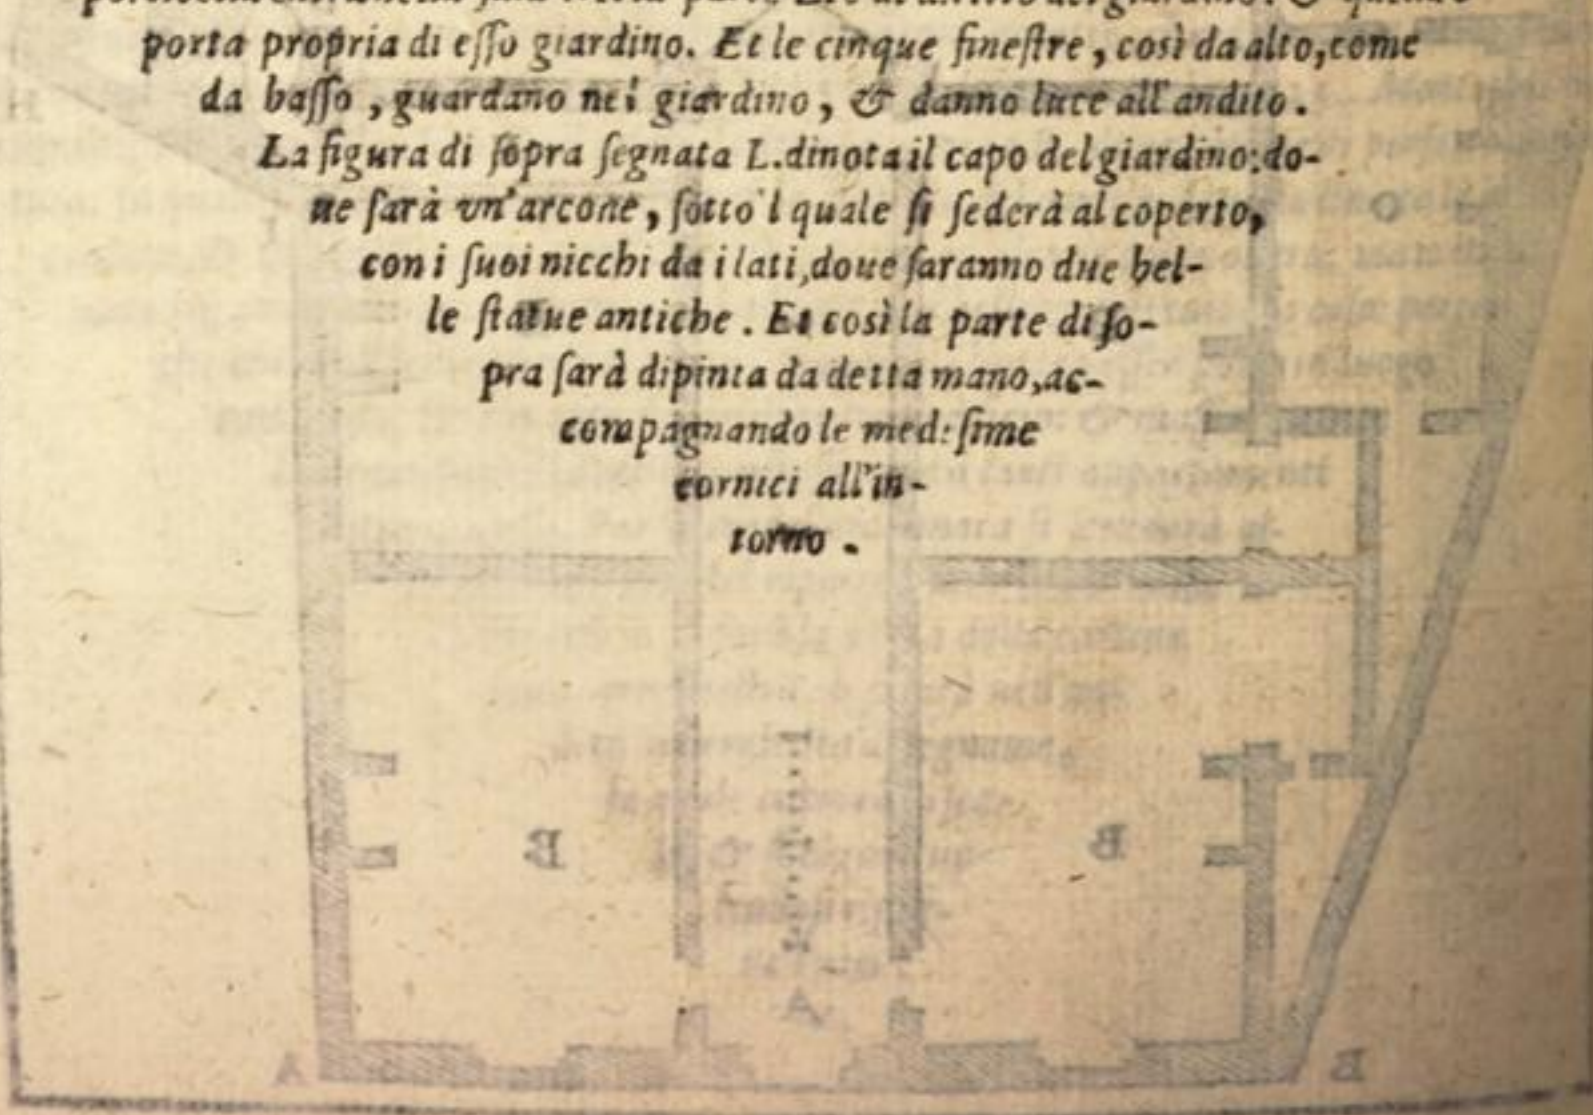 porta propria di eſſo giardino. Et le cinque fineſtre, così da alto, come
da baſſo, guardano nel giardino, & danno luce all'andito.
La figura di ſopra ſegnata L. dinota il capo del giardino: do-
ue ſarà vn'arcone, ſotto'l quale ſi ſederà al coperto,
con i ſuoi nicchi da i lati, doue ſaranno due bel-
le ſtatue antiche. Et così la parte di ſo-
pra ſarà dipinta da detta mano, ac-
compagnando le medeſime
cornici all'in-
torno.
B B
A
A B